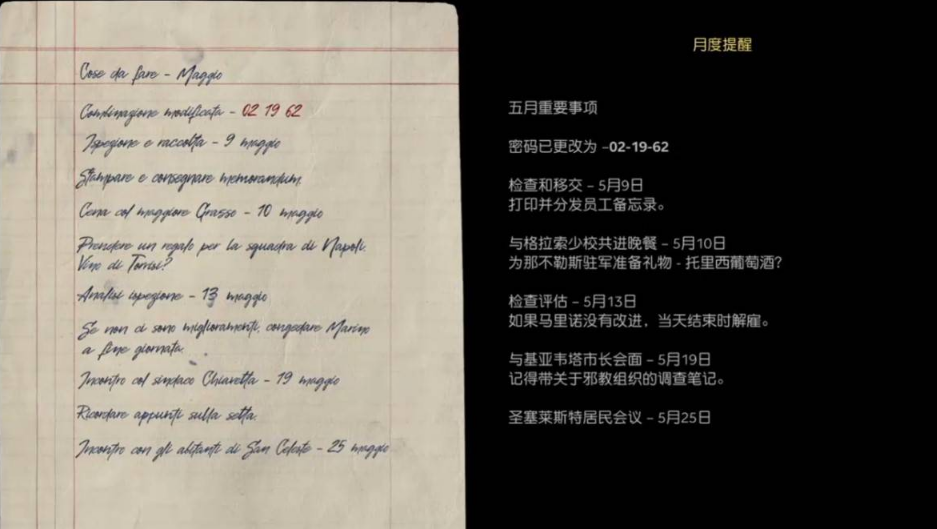 Cose da fare - Maggio
Combinazione modificata - 02 19 62
Ispezione e raccolta - 9 maggio
Stampare e consegnare memorandum.
Cena col maggiore Grasso - 10 maggio
Prendere un regalo per la squadra di Napoli.
Vino di Torrisi?
Analisi ispezione - 13 maggio
Se non ci sono miglioramenti, congedare Marino
a fine giornata.
Incontro col sindaco Chiavetta - 19 maggio
Ricordare appunti sulla setta.
Incontro con gli abitanti di San Celeste - 25 maggio
月度提醒
五月重要事项
密码已更改为 –02-19-62
检查和移交 – 5月9日
打印并分发员工备忘录。
与格拉索少校共进晚餐 – 5月10日
为那不勒斯驻军准备礼物 - 托里西葡萄酒?
检查评估 – 5月13日
如果马里诺没有改进，当天结束时解雇。
与基亚韦塔市长会面 – 5月19日
记得带关于邪教组织的调查笔记。
圣塞莱斯特居民会议 – 5月25日